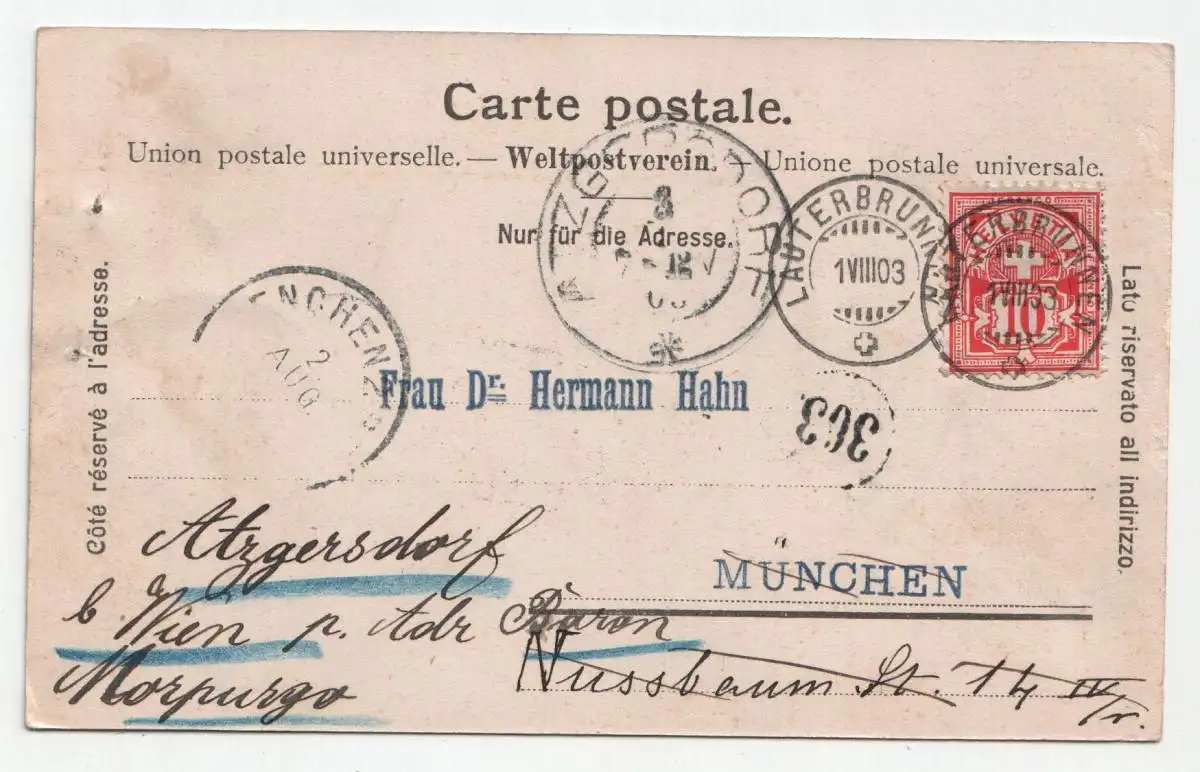 Carte postale.
Union postale universelle. — Weltpostverein. — Unione postale universale.
Nur für die Adresse.
Côté réservé à l'adresse.
Lato riservato all indirizzo.
ATZGERSDORF
3
LAUTERBRUNNEN
1 VIII 03
LAUTERBRUNNEN
1 VIII 03
10
2
AUG
363
Frau Dr. Hermann Hahn
MÜNCHEN
Nussbaum St. 14 IV/r.
Atzgersdorf
b Wien p. Adr Baron
Morpurgo